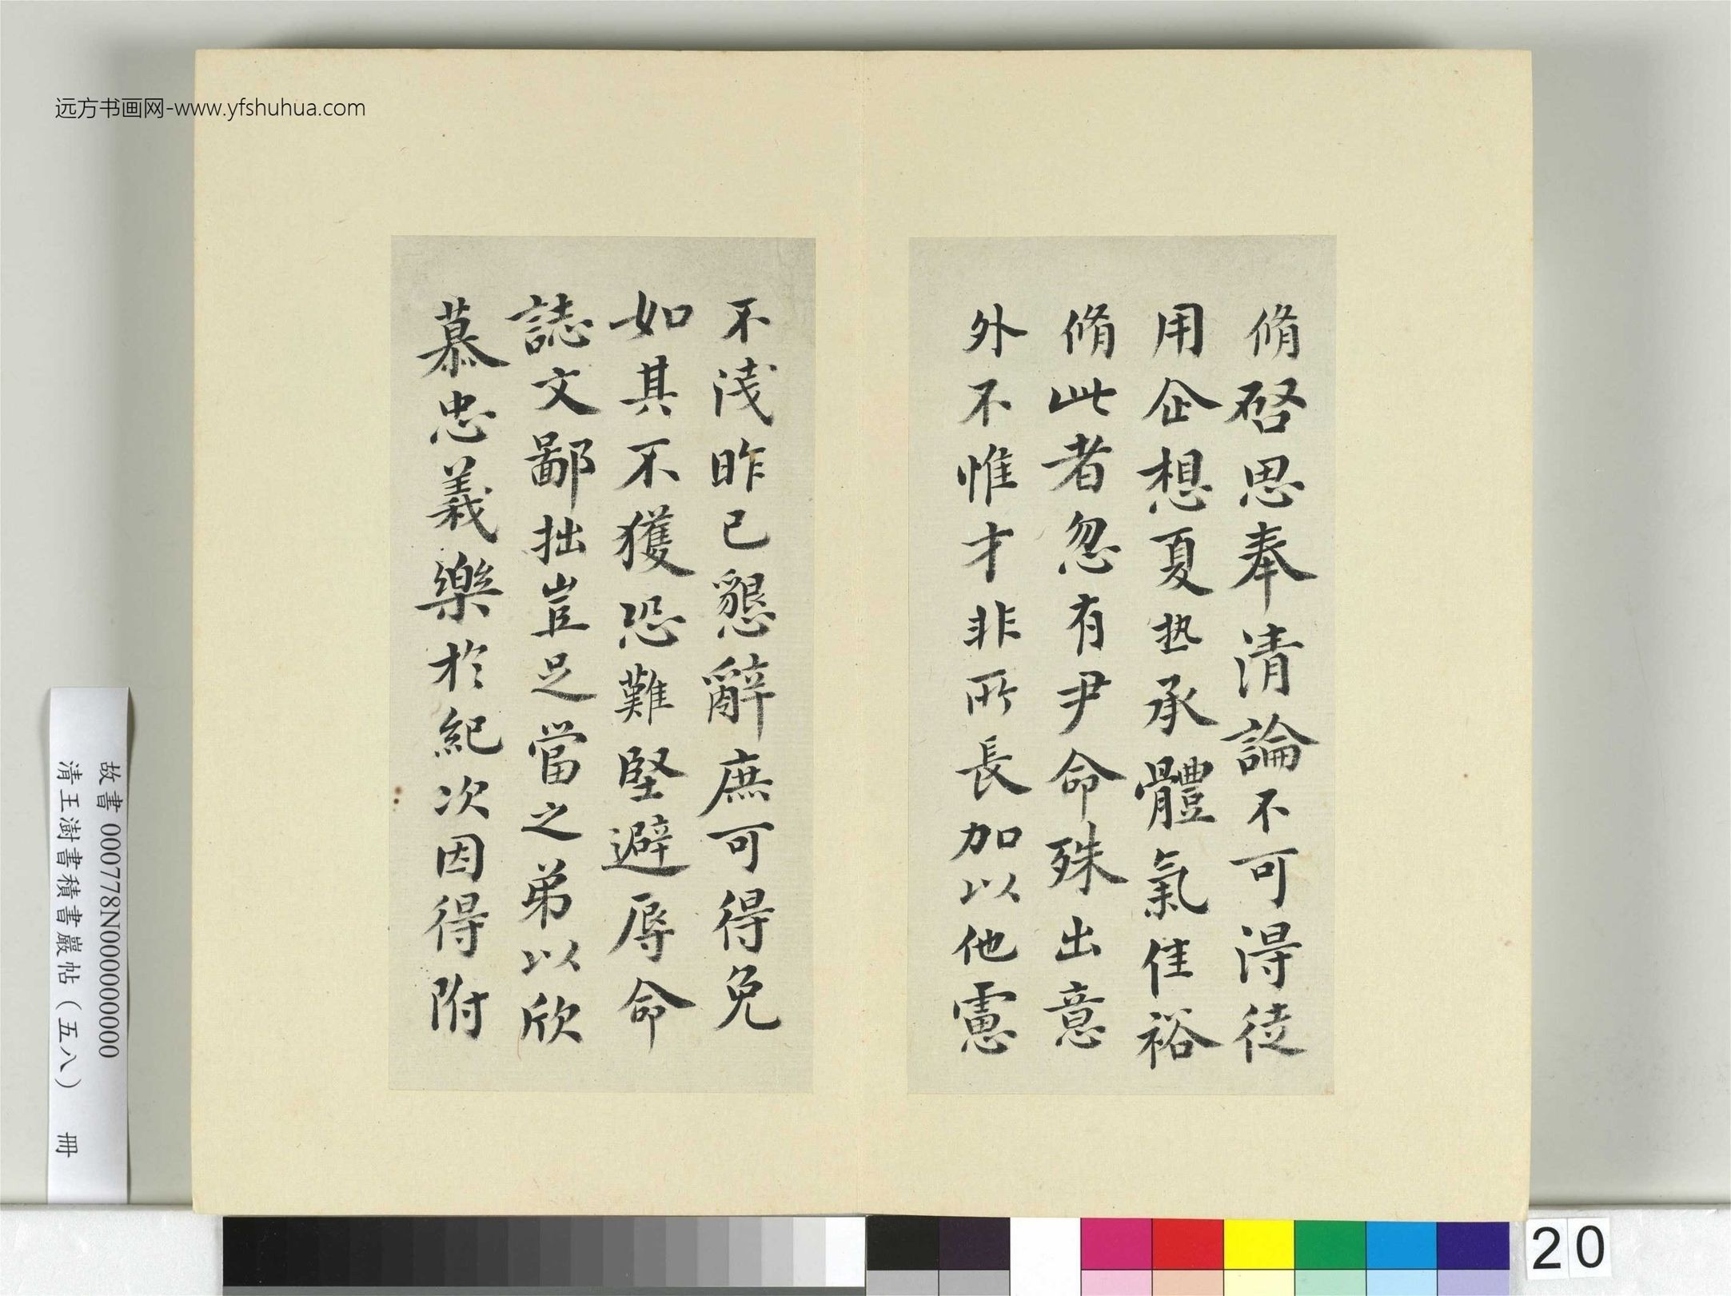 远方书画网-www.yfshuhua.com
脩啓思奉清論不可得徒
用企想夏热承體氣佳裕
脩此者忽有尹命殊出意
外不惟才非所長加以他慮
不淺昨已懇辭庶可得免
如其不獲恐難堅避辱命
誌文鄙拙豈足當之弟以欣
慕忠義樂於紀次因得附
故書 000778N000000000
清王澍書積書巖帖（五八） 冊
20